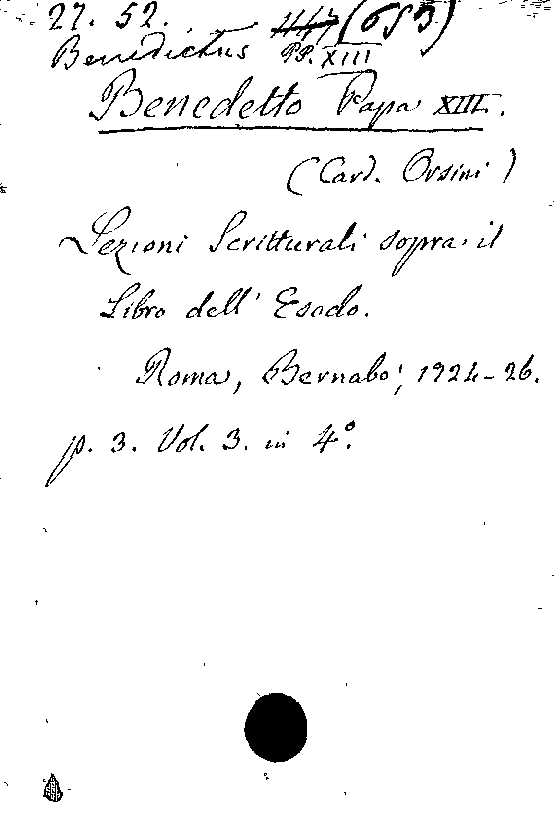 27. 52. 1147 (653)
Benedictus PP. XIII
Benedetto Papa XIII.
(Card. Orsini)
Lezioni Scritturali sopra il
Libro dell' Esodo.
Roma, Bernabo', 1724-26.
p. 3. Vol. 3. in 4º.